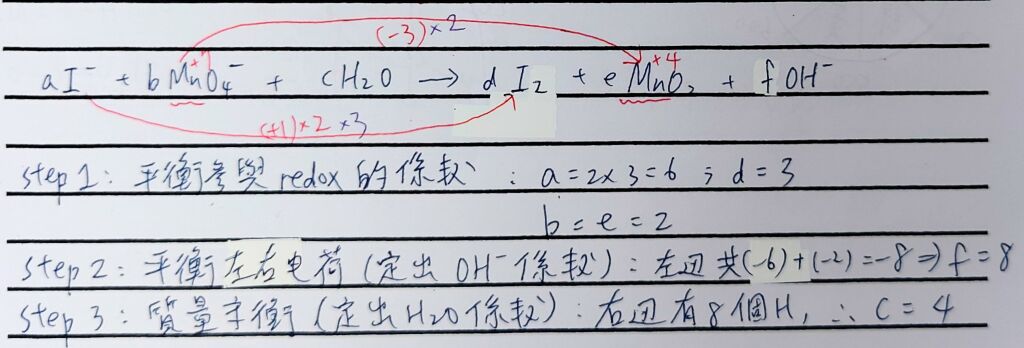 (-3)×2
+7 +4
aI⁻ + bMnO₄⁻ + cH₂O → d I₂ + e MnO₂ + f OH⁻
(+1)×2 ×3
step 1: 平衡參與 redox 的係數 : a = 2×3 = 6 ; d = 3
b = e = 2
step 2: 平衡左右电荷 (定出 OH⁻ 係數) : 左边共(-6)+(-2)=-8 ⇒ f = 8
step 3: 質量平衡 (定出 H₂O 係數) : 右边有 8 個 H, ∴ c = 4